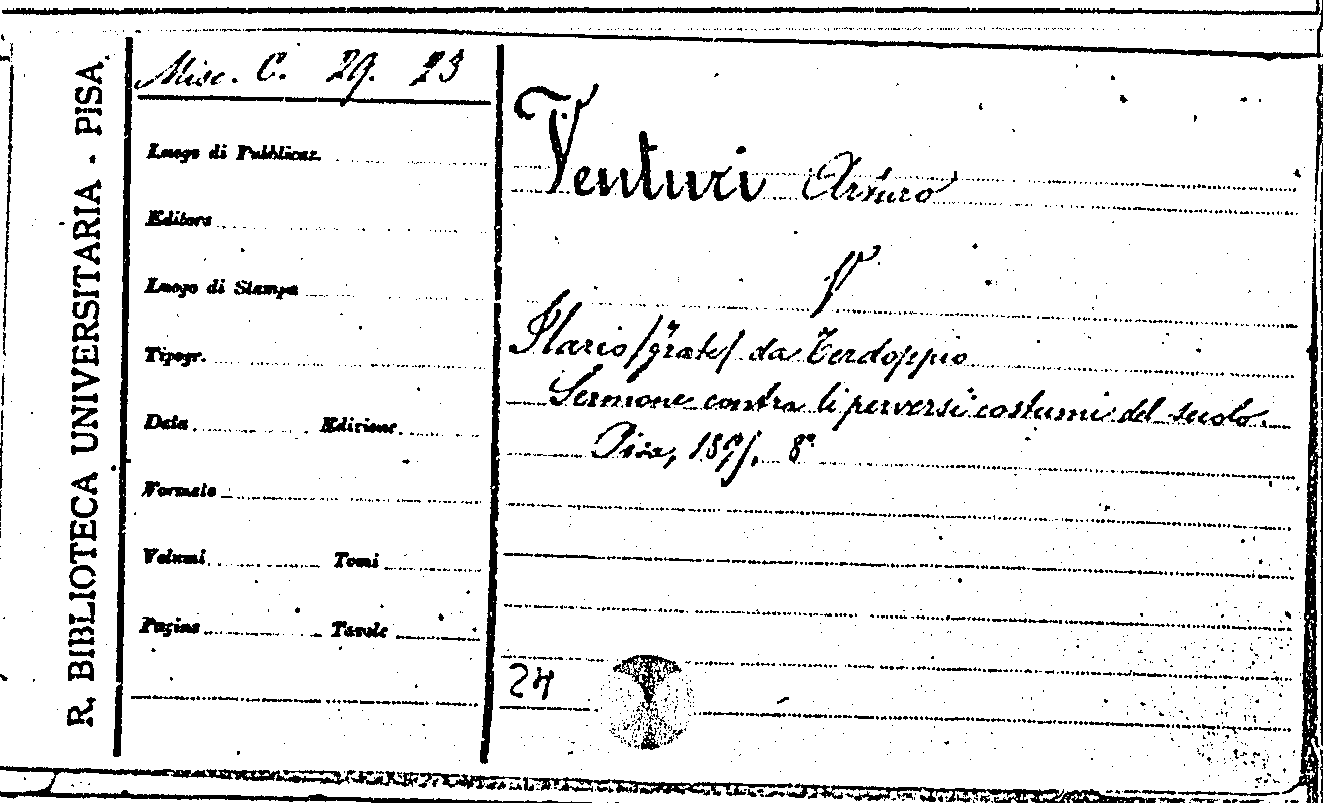 R. BIBLIOTECA UNIVERSITARIA - PISA
Misc. C. 29. 23
Luogo di Pubblicaz.
Editore
Luogo di Stampa
Tipogr.
Data Edizione
Formato
Volumi Tomi
Pagine Tavole
Venturi Arturo
V
Ilario /frate/ da Terdoppio
Sermone contra li perversi costumi del secolo.
Pisa, 8°
24